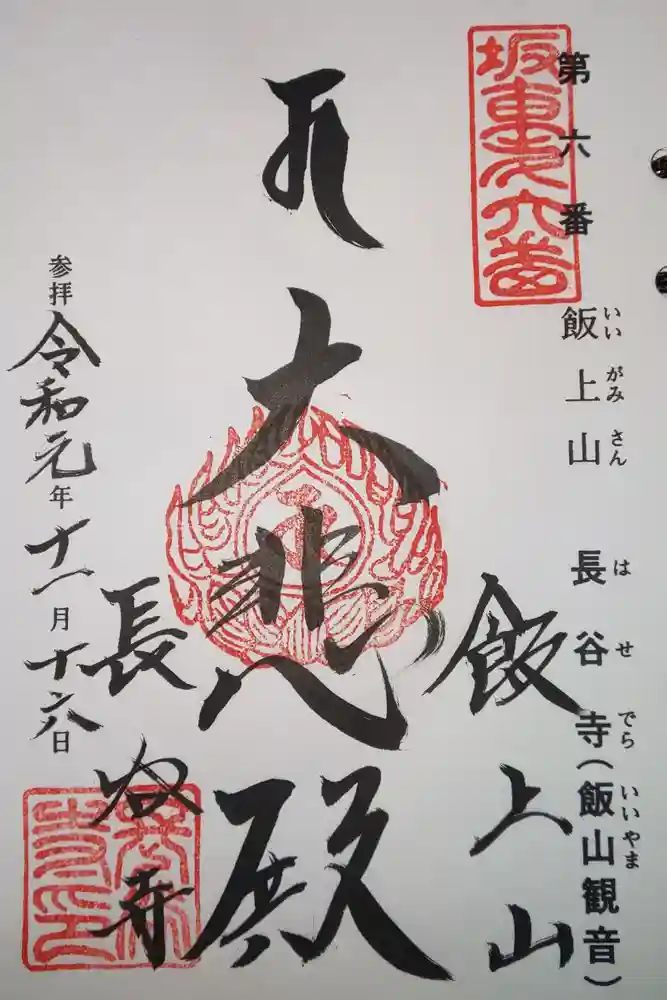 第六番
坂東第六番
飯上山 長谷寺(飯山観音)
いいがみさん はせでら いいやま
飯上山
大悲殿
長谷寺
参拝 令和元年十一月十六日